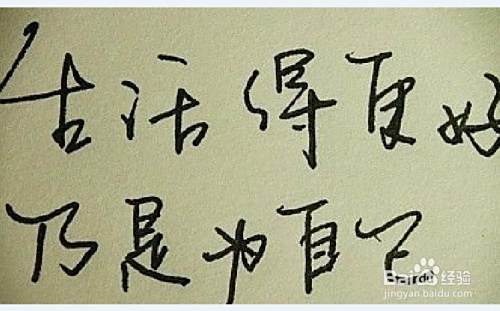 生活得更好
乃是为自己
Baidu 经验
jingyan.baidu.com